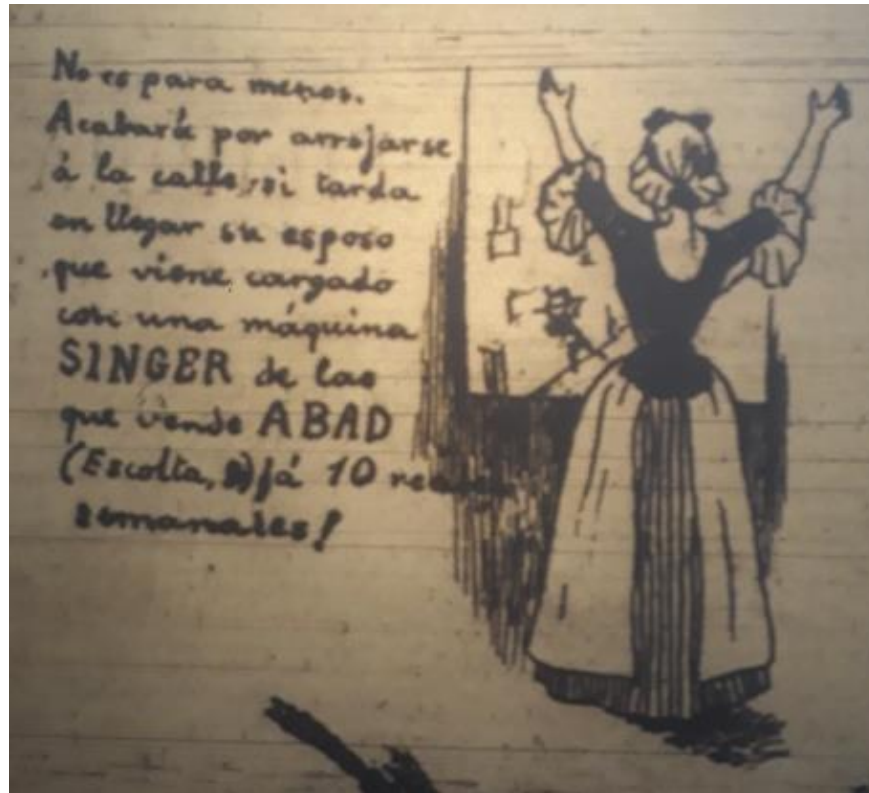 No es para menos.
Acabará por arrojarse
á la calle, si tarda
en llegar su esposo
que viene cargado
con una máquina
SINGER de las
que vende ABAD
(Escolta, ) á 10 reales
semanales!